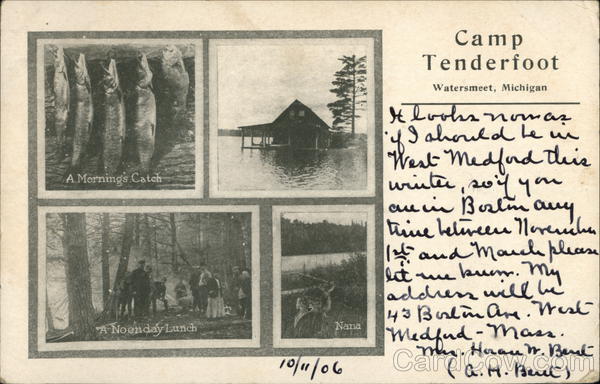 Camp
Tenderfoot
Watersmeet, Michigan
It looks now as
if I should be in
West Medford this
winter, so if you
are in Boston any
time between November
1st and March please
let me know. My
address will be
43 Boston Ave. West
Medford - Mass.
Mrs. W. Bent
(A. M. Bent)
A Morning's Catch
A Noonday Lunch
Nana
10/11/06
CardCow.com